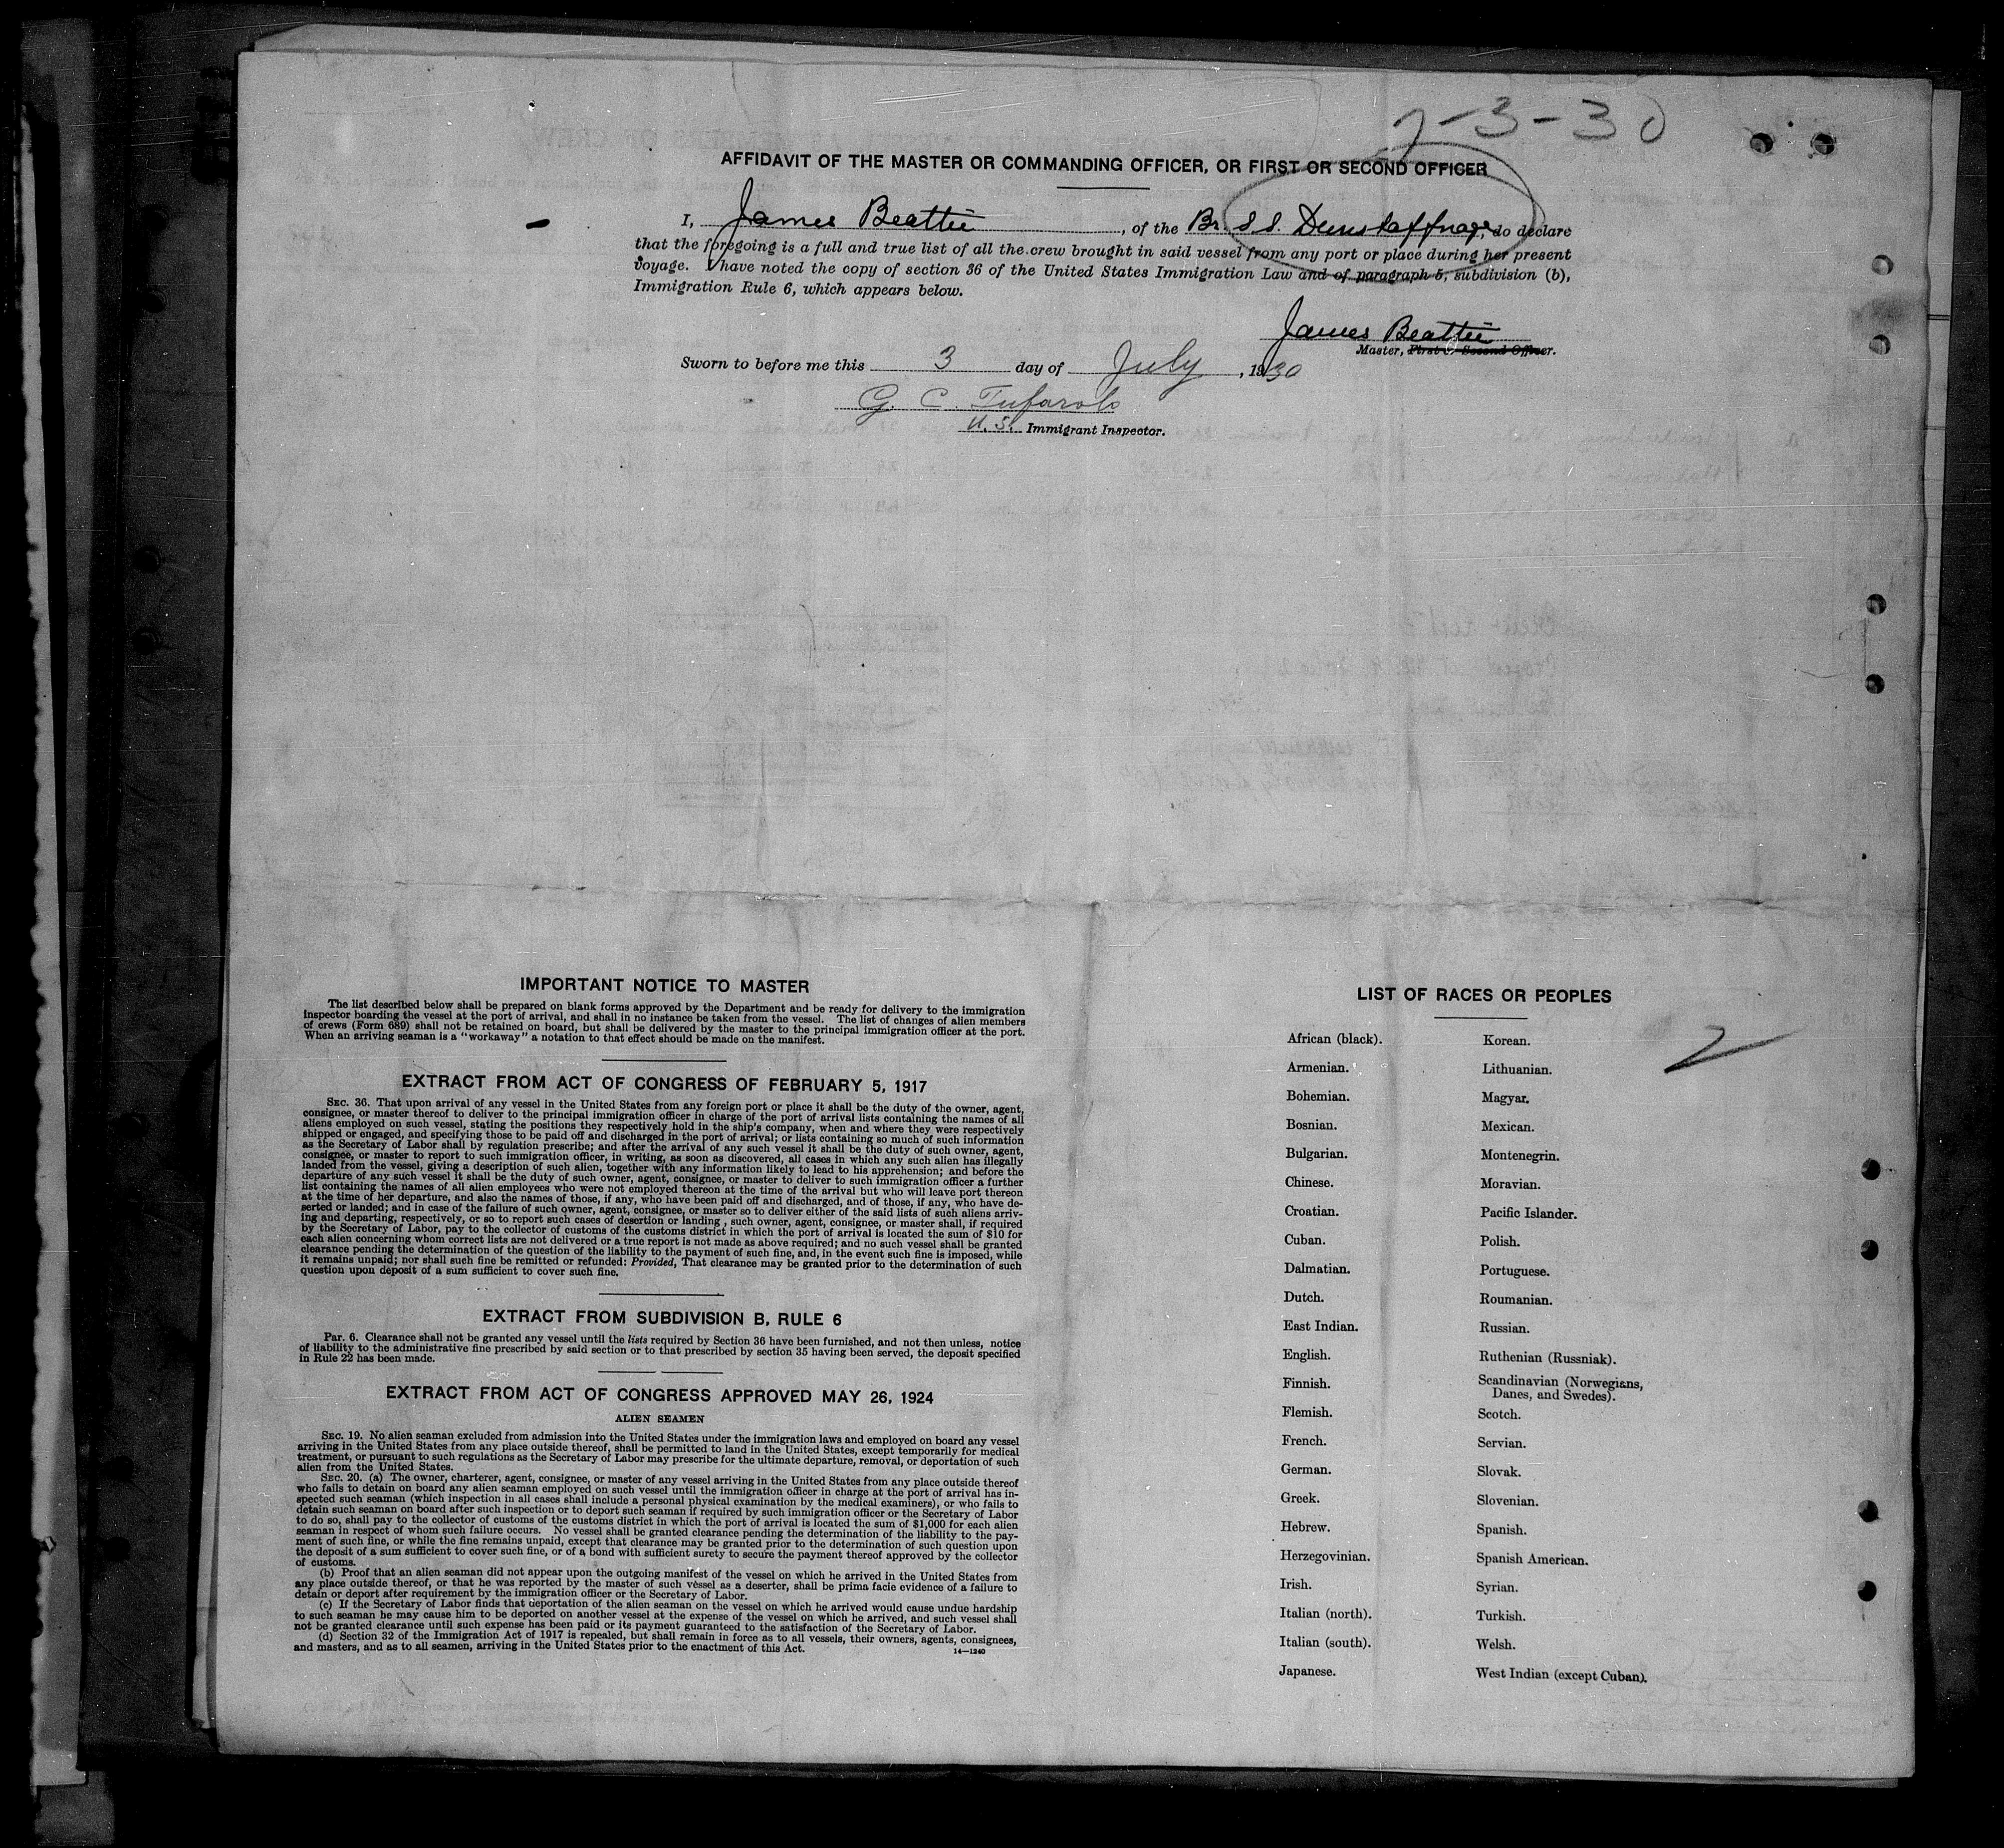 7-3-30
AFFIDAVIT OF THE MASTER OR COMMANDING OFFICER, OR FIRST OR SECOND OFFICER
I, James Beattie, of the Br. S.S. Dunstaffnage, do declare
that the foregoing is a full and true list of all the crew brought in said vessel from any port or place during her present
voyage. I have noted the copy of section 36 of the United States Immigration Law and of paragraph 5, subdivision (b),
Immigration Rule 6, which appears below.
James Beattie
Master, First or Second Officer.
Sworn to before me this 3 day of July, 1930
G. C. Tufarolo
U.S. Immigrant Inspector.
IMPORTANT NOTICE TO MASTER
The list described below shall be prepared on blank forms approved by the Department and be ready for delivery to the immigration
inspector boarding the vessel at the port of arrival, and shall in no instance be taken from the vessel. The list of changes of alien members
of crews (Form 689) shall not be retained on board, but shall be delivered by the master to the principal immigration officer at the port.
When an arriving seaman is a "workaway" a notation to that effect should be made on the manifest.
EXTRACT FROM ACT OF CONGRESS OF FEBRUARY 5, 1917
SEC. 36. That upon arrival of any vessel in the United States from any foreign port or place it shall be the duty of the owner, agent,
consignee, or master thereof to deliver to the principal immigration officer in charge of the port of arrival lists containing the names of all
aliens employed on such vessel, stating the positions they respectively hold in the ship's company, when and where they were respectively
shipped or engaged, and specifying those to be paid off and discharged in the port of arrival; or lists containing so much of such information
as the Secretary of Labor shall by regulation prescribe; and after the arrival of any such vessel it shall be the duty of such owner, agent,
consignee, or master to report to such immigration officer, in writing, as soon as discovered, all cases in which any such alien has illegally
landed from the vessel, giving a description of such alien, together with any information likely to lead to his apprehension; and before the
departure of any such vessel it shall be the duty of such owner, agent, consignee, or master to deliver to such immigration officer a further
list containing the names of all alien employees who were not employed thereon at the time of the arrival but who will leave port thereon
at the time of her departure, and also the names of those, if any, who have been paid off and discharged, and of those, if any, who have de-
serted or landed; and in case of the failure of such owner, agent, consignee, or master so to deliver either of the said lists of such aliens arriv-
ing and departing, respectively, or so to report such cases of desertion or landing, such owner, agent, consignee, or master shall, if required
by the Secretary of Labor, pay to the collector of customs of the customs district in which the port of arrival is located the sum of $10 for
each alien concerning whom correct lists are not delivered or a true report is not made as above required; and no such vessel shall be granted
clearance pending the determination of the question of the liability to the payment of such fine, and, in the event such fine is imposed, while
it remains unpaid; nor shall such fine be remitted or refunded: Provided, That clearance may be granted prior to the determination of such
question upon deposit of a sum sufficient to cover such fine.
EXTRACT FROM SUBDIVISION B, RULE 6
Par. 6. Clearance shall not be granted any vessel until the lists required by Section 36 have been furnished, and not then unless, notice
of liability to the administrative fine prescribed by said section or to that prescribed by section 35 having been served, the deposit specified
in Rule 22 has been made.
EXTRACT FROM ACT OF CONGRESS APPROVED MAY 26, 1924
ALIEN SEAMEN
SEC. 19. No alien seaman excluded from admission into the United States under the immigration laws and employed on board any vessel
arriving in the United States from any place outside thereof, shall be permitted to land in the United States, except temporarily for medical
treatment, or pursuant to such regulations as the Secretary of Labor may prescribe for the ultimate departure, removal, or deportation of such
alien from the United States.
SEC. 20. (a) The owner, charterer, agent, consignee, or master of any vessel arriving in the United States from any place outside thereof
who fails to detain on board any alien seaman employed on such vessel until the immigration officer in charge at the port of arrival has in-
spected such seaman (which inspection in all cases shall include a personal physical examination by the medical examiners), or who fails to
detain such seaman on board after such inspection or to deport such seaman if required by such immigration officer or the Secretary of Labor
to do so, shall pay to the collector of customs of the customs district in which the port of arrival is located the sum of $1,000 for each alien
seaman in respect of whom such failure occurs. No vessel shall be granted clearance pending the determination of the liability to the pay-
ment of such fine, or while the fine remains unpaid, except that clearance may be granted prior to the determination of such question upon
the deposit of a sum sufficient to cover such fine, or of a bond with sufficient surety to secure the payment thereof approved by the collector
of customs.
(b) Proof that an alien seaman did not appear upon the outgoing manifest of the vessel on which he arrived in the United States from
any place outside thereof, or that he was reported by the master of such vessel as a deserter, shall be prima facie evidence of a failure to
detain or deport after requirement by the immigration officer or the Secretary of Labor.
(c) If the Secretary of Labor finds that deportation of the alien seaman on the vessel on which he arrived would cause undue hardship
to such seaman he may cause him to be deported on another vessel at the expense of the vessel on which he arrived, and such vessel shall
not be granted clearance until such expense has been paid or its payment guaranteed to the satisfaction of the Secretary of Labor.
(d) Section 32 of the Immigration Act of 1917 is repealed, but shall remain in force as to all vessels, their owners, agents, consignees,
and masters, and as to all seamen, arriving in the United States prior to the enactment of this Act.
14—1240
LIST OF RACES OR PEOPLES
African (black).
Armenian.
Bohemian.
Bosnian.
Bulgarian.
Chinese.
Croatian.
Cuban.
Dalmatian.
Dutch.
East Indian.
English.
Finnish.
Flemish.
French.
German.
Greek.
Hebrew.
Herzegovinian.
Irish.
Italian (north).
Italian (south).
Japanese.
Korean.
Lithuanian.
Magyar.
Mexican.
Montenegrin.
Moravian.
Pacific Islander.
Polish.
Portuguese.
Roumanian.
Russian.
Ruthenian (Russniak).
Scandinavian (Norwegians,
Danes, and Swedes).
Scotch.
Servian.
Slovak.
Slovenian.
Spanish.
Spanish American.
Syrian.
Turkish.
Welsh.
West Indian (except Cuban).
2